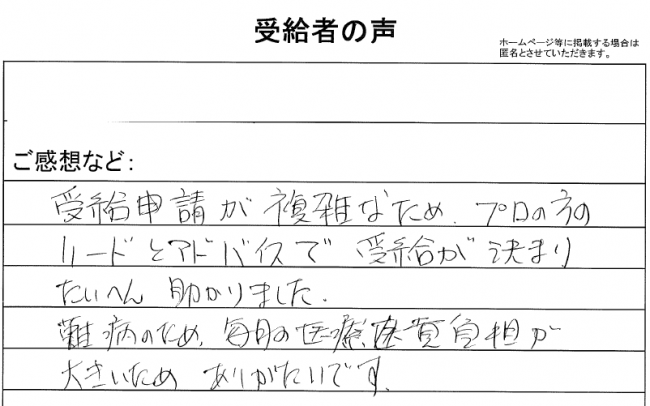 受給者の声
ホームページ等に掲載する場合は
匿名とさせていただきます。
ご感想など：
受給申請が複雑なため、プロの方の
リードとアドバイスで受給が決まり
たいへん助かりました.
難病のため、毎月の医療費負担が
大きいためありがたいです.